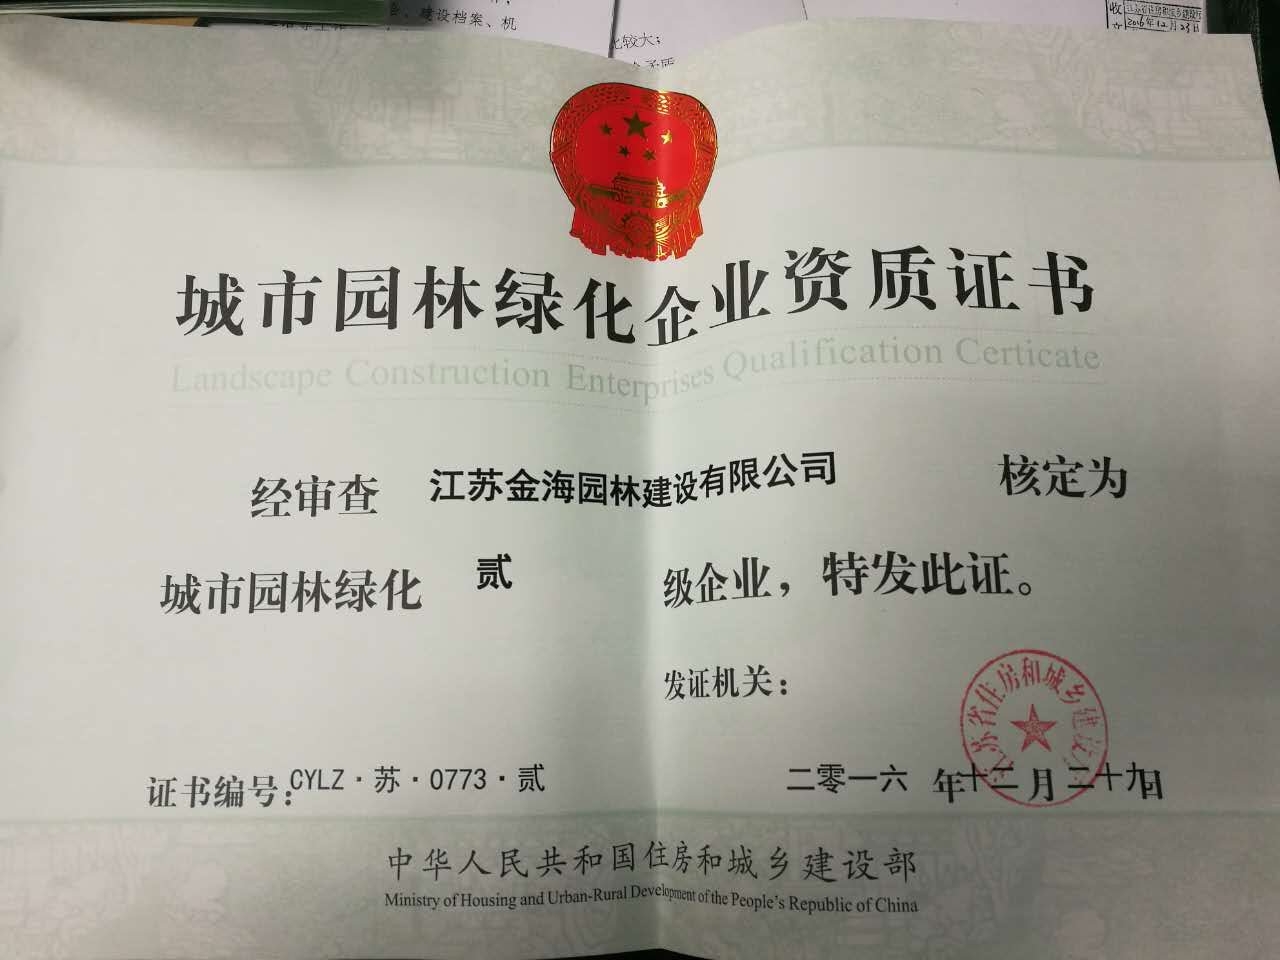 建设档案、机
比较大；
收
2016年12月23日
城市园林绿化企业资质证书
Landscape Construction Enterprises Qualification Certicate
经审查 江苏金海园林建设有限公司 核定为
城市园林绿化 贰 级企业，特发此证。
发证机关：
江苏省住房和城乡建设厅
证书编号：CYLZ·苏·0773·贰 二零一六 年十二月二十九日
中华人民共和国住房和城乡建设部
Ministry of Housing and Urban-Rural Development of the People's Republic of China